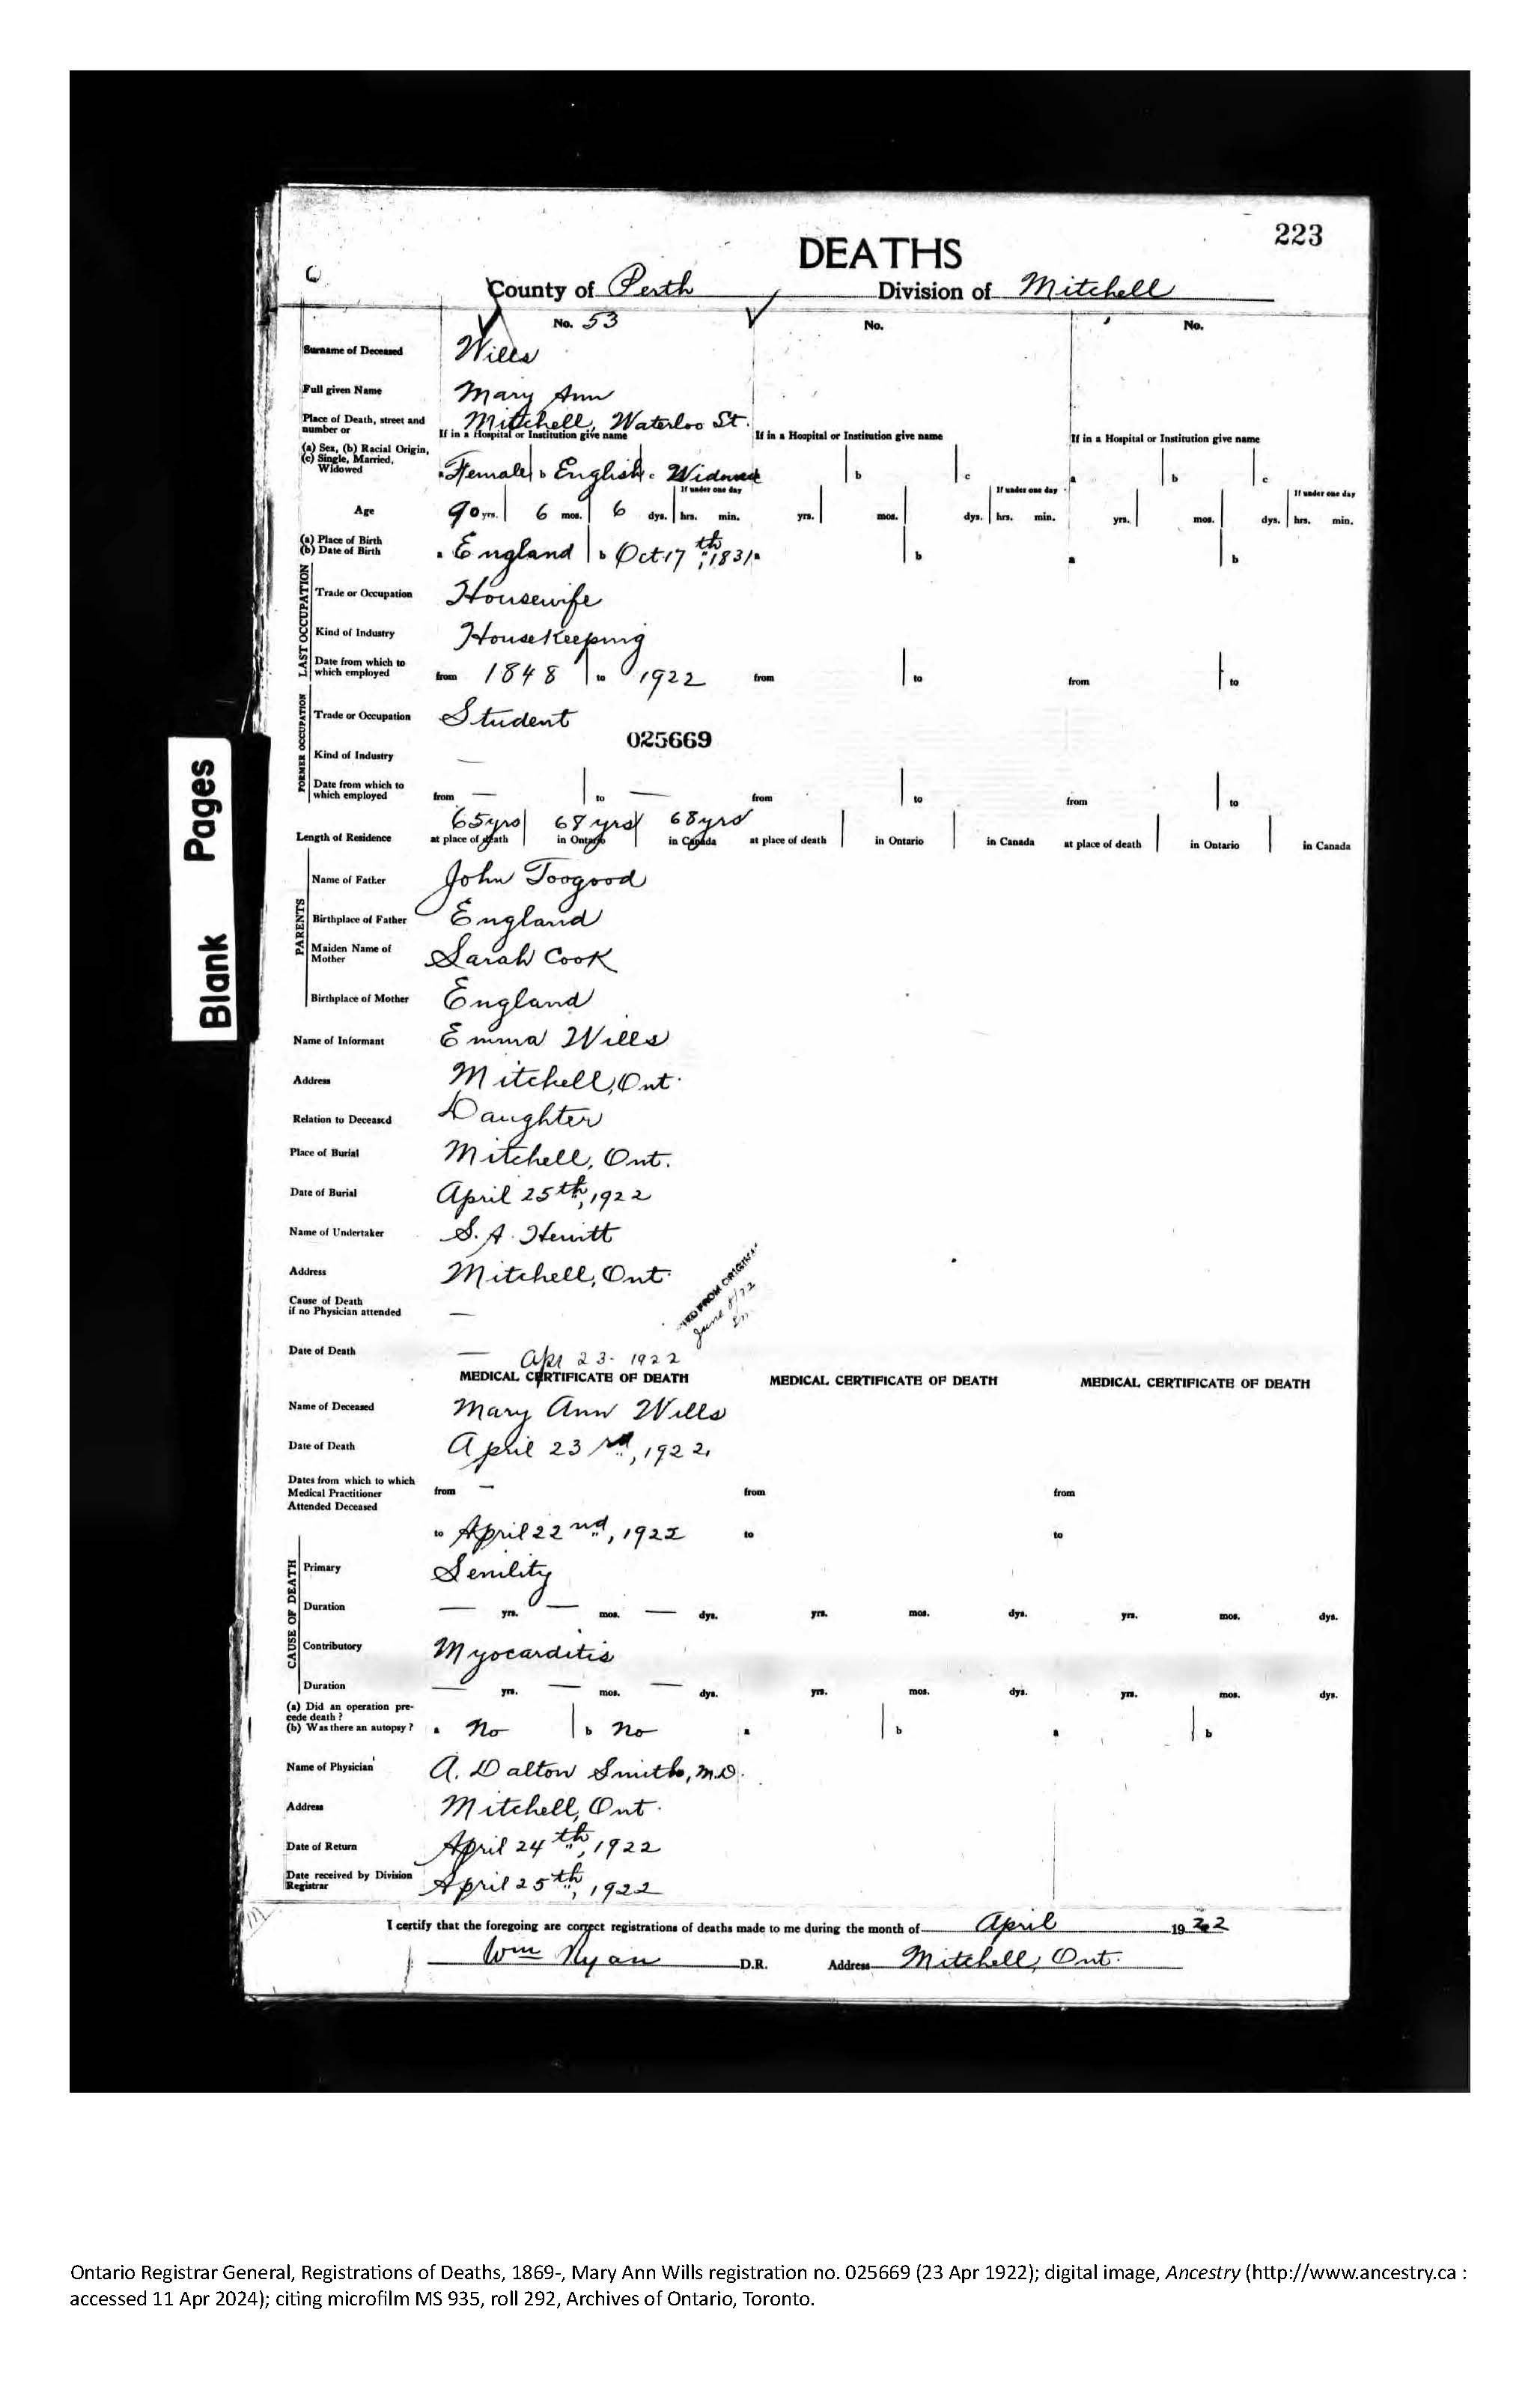 223
DEATHS
County of Perth Division of Mitchell
No. 53 No. No.
Surname of Deceased Wills
Full given Name Mary Ann
Place of Death, street and number or Mitchell, Waterloo St.
If in a Hospital or Institution give name If in a Hospital or Institution give name If in a Hospital or Institution give name
(a) Sex, (b) Racial Origin, (c) Single, Married, Widowed a Female b English c Widowed b c a b c
If under one day If under one day If under one day
Age 90 yrs. 6 mos. 6 dys. hrs. min. yrs. mos. dys. hrs. min. yrs. mos. dys. hrs. min.
(a) Place of Birth
(b) Date of Birth a England b Oct 17th, 1831 a b a b
LAST OCCUPATION
Trade or Occupation Housewife
Kind of Industry HouseKeeping
Date from which to which employed from 1848 to 1922 from to from to
FORMER OCCUPATION
Trade or Occupation Student
025669
Kind of Industry —
Date from which to which employed from — to — from to from to
65 yrs 68 yrs 68 yrs
Length of Residence at place of death in Ontario in Canada at place of death in Ontario in Canada at place of death in Ontario in Canada
PARENTS
Name of Father John Toogood
Birthplace of Father England
Maiden Name of Mother Sarah Cook
Birthplace of Mother England
Name of Informant Emma Wills
Address Mitchell, Ont.
Relation to Deceased Daughter
Place of Burial Mitchell, Ont.
Date of Burial April 25th, 1922
Name of Undertaker S. A. Hewitt
Address Mitchell, Ont.
FROM ORIGINAL
June 8/22
Cause of Death if no Physician attended —
Date of Death — Apr 23 - 1922
MEDICAL CERTIFICATE OF DEATH MEDICAL CERTIFICATE OF DEATH MEDICAL CERTIFICATE OF DEATH
Name of Deceased Mary Ann Wills
Date of Death April 23rd, 1922
Dates from which to which Medical Practitioner Attended Deceased from — from from
to April 22nd, 1922 to to
CAUSE OF DEATH
Primary Senility
Duration — yrs. — mos. — dys. yrs. mos. dys. yrs. mos. dys.
Contributory Myocarditis
Duration — yrs. — mos. — dys. yrs. mos. dys. yrs. mos. dys.
(a) Did an operation precede death?
(b) Was there an autopsy? a No b No a b a b
Name of Physician A. Dalton Smith, M.D.
Address Mitchell, Ont.
Date of Return April 24th, 1922
Date received by Division Registrar April 25th, 1922
I certify that the foregoing are correct registrations of deaths made to me during the month of April 1922
Wm Ryan D.R. Address Mitchell, Ont.
Blank Pages
Ontario Registrar General, Registrations of Deaths, 1869-, Mary Ann Wills registration no. 025669 (23 Apr 1922); digital image, Ancestry (http://www.ancestry.ca :
accessed 11 Apr 2024); citing microfilm MS 935, roll 292, Archives of Ontario, Toronto.